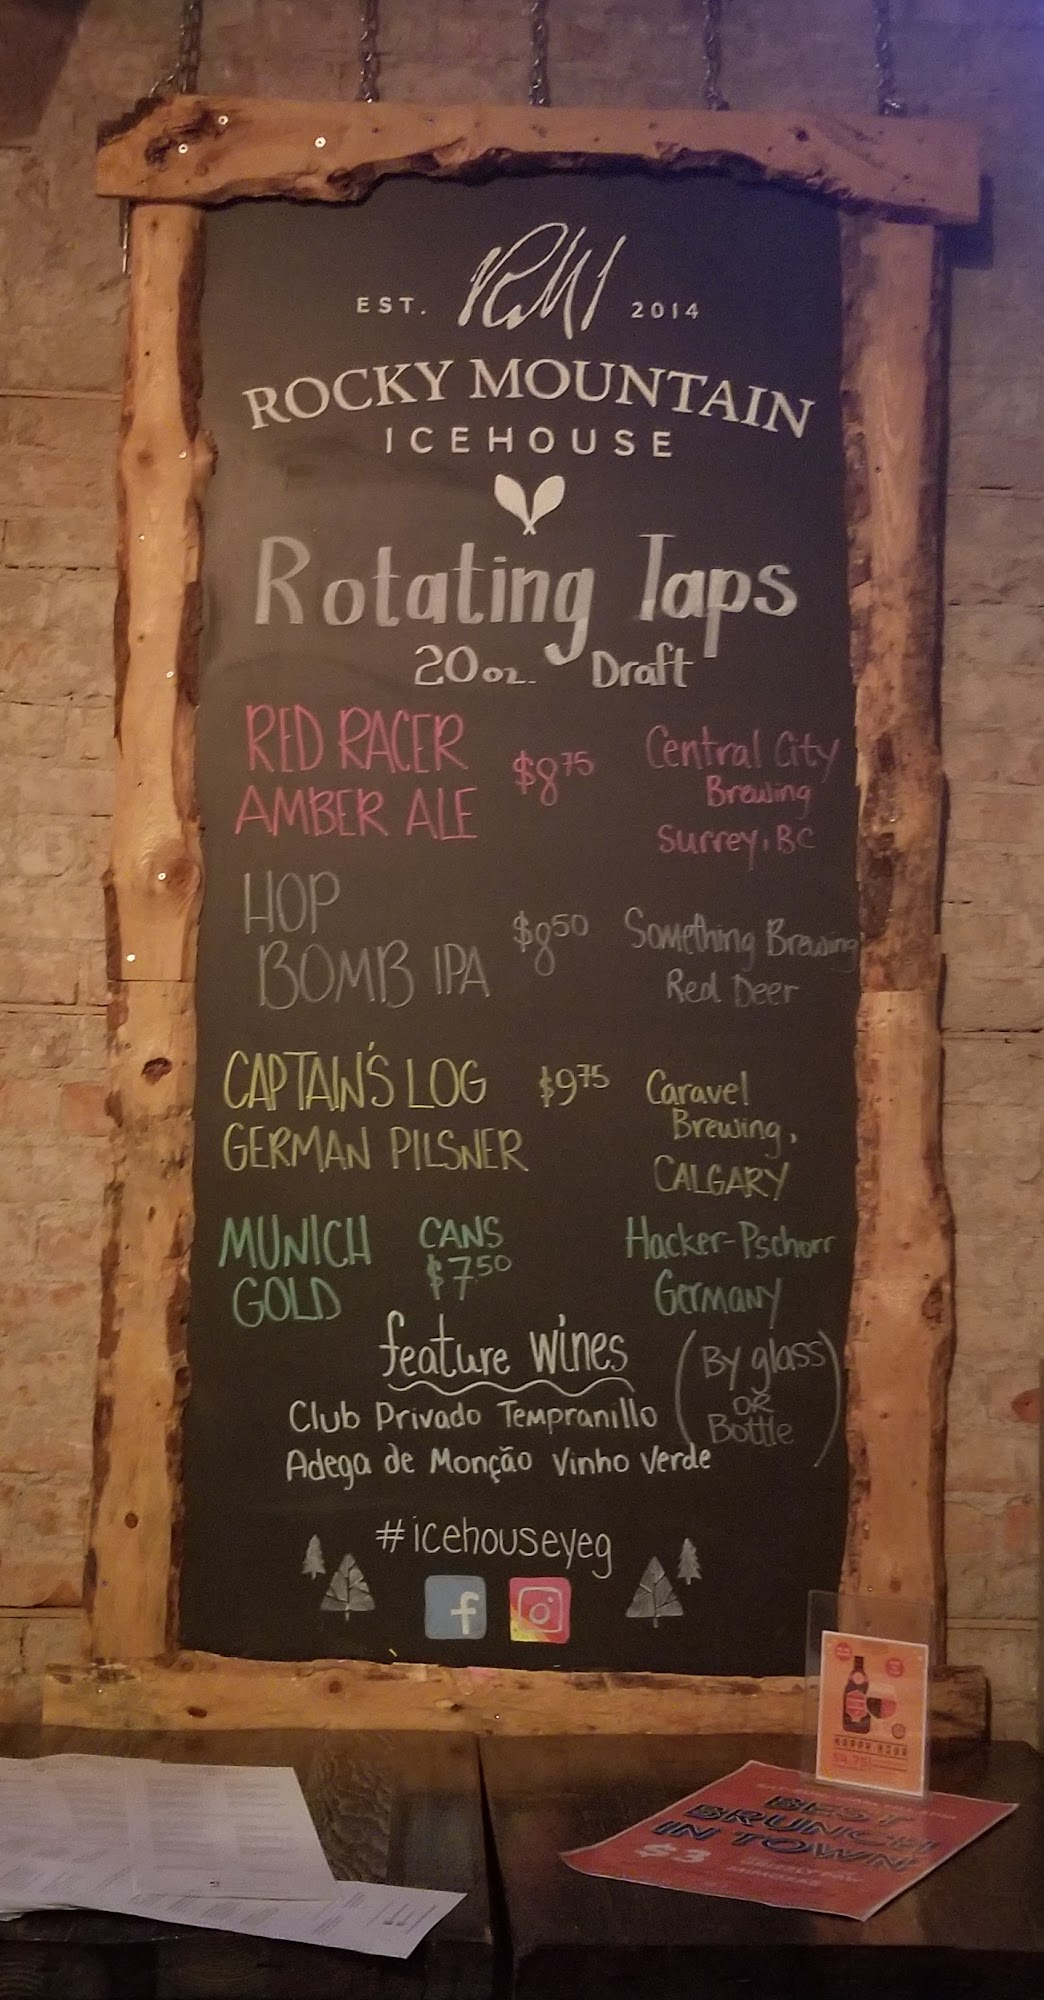 EST. RMI 2014
ROCKY MOUNTAIN
ICEHOUSE
Rotating Taps
20oz. Draft
RED RACER
AMBER ALE
$8.75
Central City
Brewing
Surrey, BC
HOP
BOMB IPA
$8.50
Something Brewing
Red Deer
CAPTAIN'S LOG
GERMAN PILSNER
$9.75
Caravel
Brewing,
CALGARY
MUNICH
GOLD
CANS
$7.50
Hacker-Pschorr
Germany
feature wines
(By glass
OR
Bottle)
Club Privado Tempranillo
Adega de Monção Vinho Verde
#icehouseyeg
f
HAPPY HOUR
BEST
BRUNCH
IN TOWN!
$3